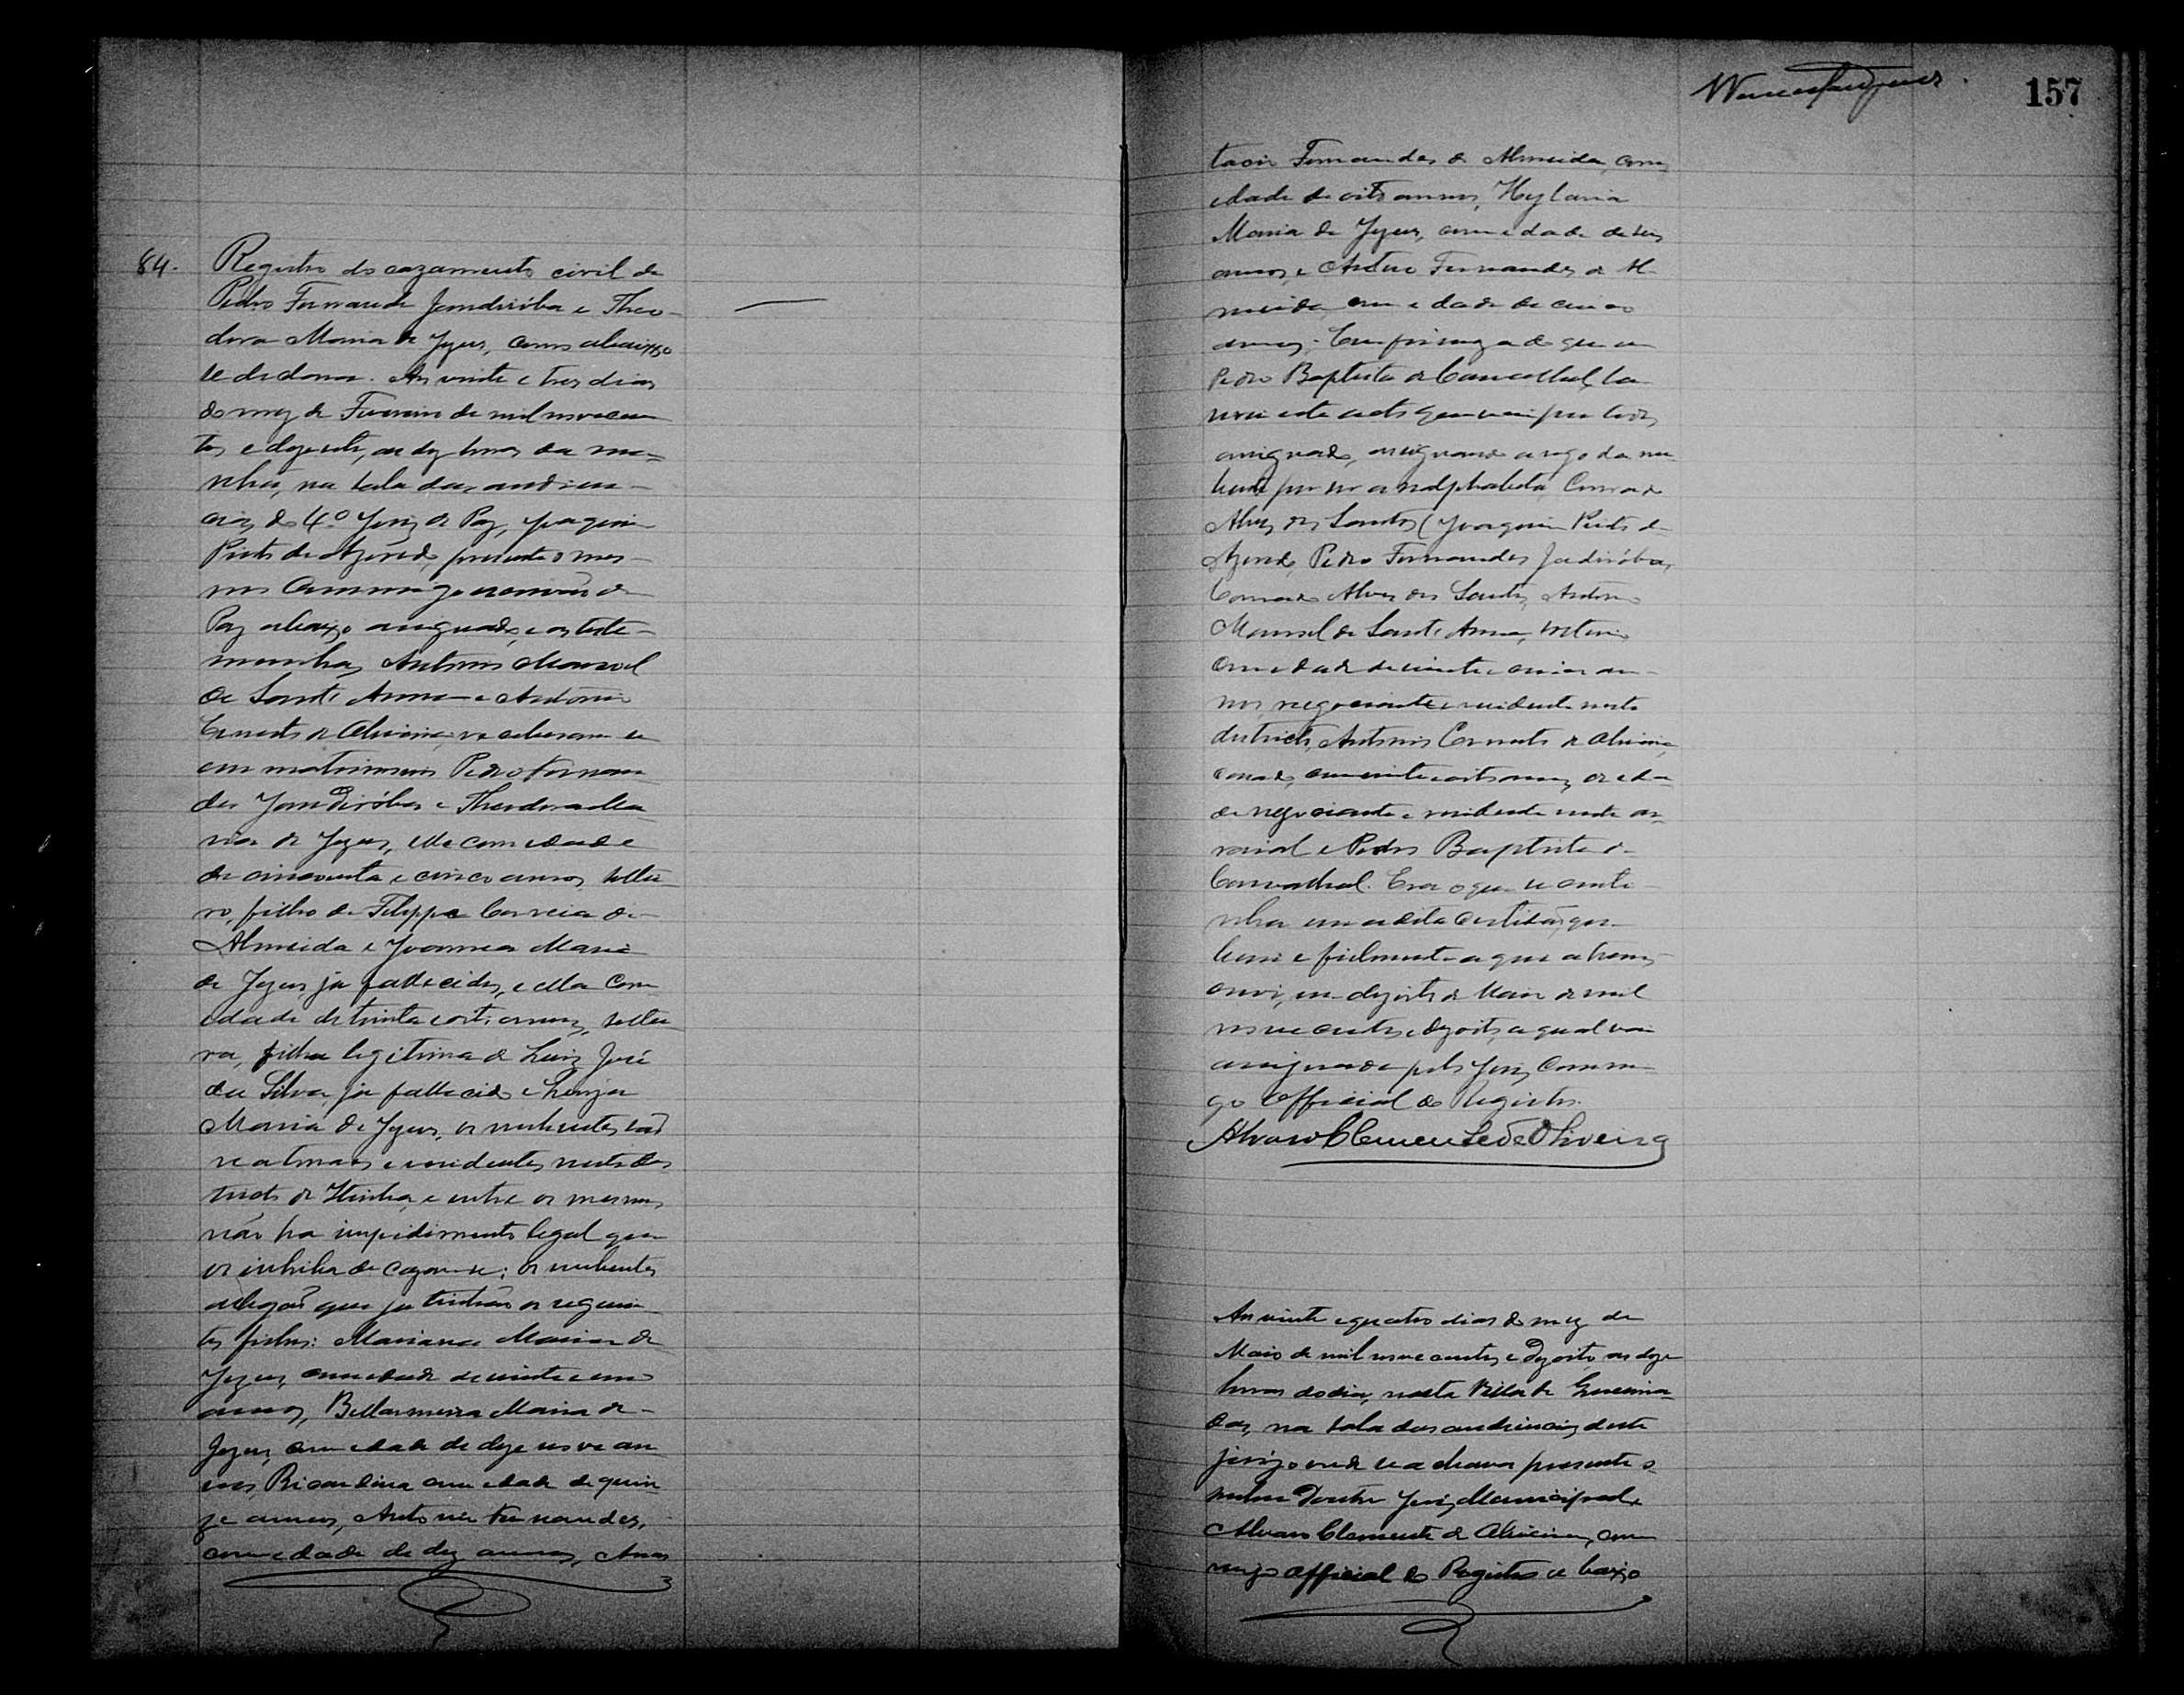 84.
Registro do cazamento civil de
Pedro Fernandes Jandiróba e Theo-
dora Maria de Jezus, como abaixo
se declara. Aos vinte e tres dias
do mez de Fevereiro de mil novecen-
tos e dezoito, as dez horas da ma-
nhã, na sala das audien-
cias do 4º Juiz de Paz, Joaquim
Pinto de Azevedo, presente o mes-
mo commigo escrivão de
Paz abaixo assignado, e as teste-
munhas Antonio Manoel
de Sant'Anna e Antonio
Ernesto de Oliveira, receberam-se
em matrimonio Pedro Fernan-
des Jandiróba e Theodora Ma-
ria de Jezus, elle com edade
de cincoenta e cinco annos, soltei-
ro, filho de Felippe Correia de
Almeida e Joanna Maria
de Jezus, já fallecidos, e ella com
edade de trinta e oito annos, soltei-
ra, filha legitima de Luiz José
da Silva, já fallecido e Luiza
Maria de Jezus, os nubentes são
naturaes e residentes neste dis-
tricto de e entre os mesmos
não ha impedimento legal que
os inhiba de cazar-se; os nubentes
allegão que já tinhão os seguin-
tes filhos: Marianna Maria de
Jezus, com edade de vinte e um
annos, Bellarmina Maria de
Jezus, com edade de deze nove an-
nos, Ricardina com edade de quin-
ze annos, Antonia Fernandes,
com edade de dez annos, Anas
157
tacio Fernandes de Almeida, com
edade de oito annos, Hylaria
Maria de Jezus, com edade de seis
annos, e Arthur Fernandes de Al-
meida, com edade de cinco
annos. Em firmeza do que eu
Pedro Baptista de Carvalhal, la-
vrei este acto que vai por todos
assignado, assignando a rogo da nu-
bente por ser analphabeta Conrado
Alves dos Santos (Joaquim Pinto de
Azevedo, Pedro Fernandes Jadiróba,
Conrado Alves dos Santos, Antonio
Manoel de Sant'Anna, solteiro
com edade de vinte e cinco an-
nos, negociante e residente neste
districto, Antonio Ernesto de Oliveira,
cazado, com vinte e oito annos de eda-
de negociante e residente neste ar-
raial e Pedro Baptista de
Carvalhal. Era o que se conti-
nha em a dita certidão, que
bem e fielmente aqui a trans-
crevi, em dezoito de Maio de mil
novecentos e dezoito, a qual vai
assignada pelo Juiz commi-
go Official do Registro.
Alvaro Clemente de Oliveira
Aos vinte e quatro dias do mez de
Maio de mil novecentos e dezoito, as doze
horas do dia, nesta Villa de
na sala das audiencias deste
juizo onde se achava presente o
senhor Doutor Juiz Municipal,
Alvaro Clemente de Oliveira, com-
migo official do Registro a baixo